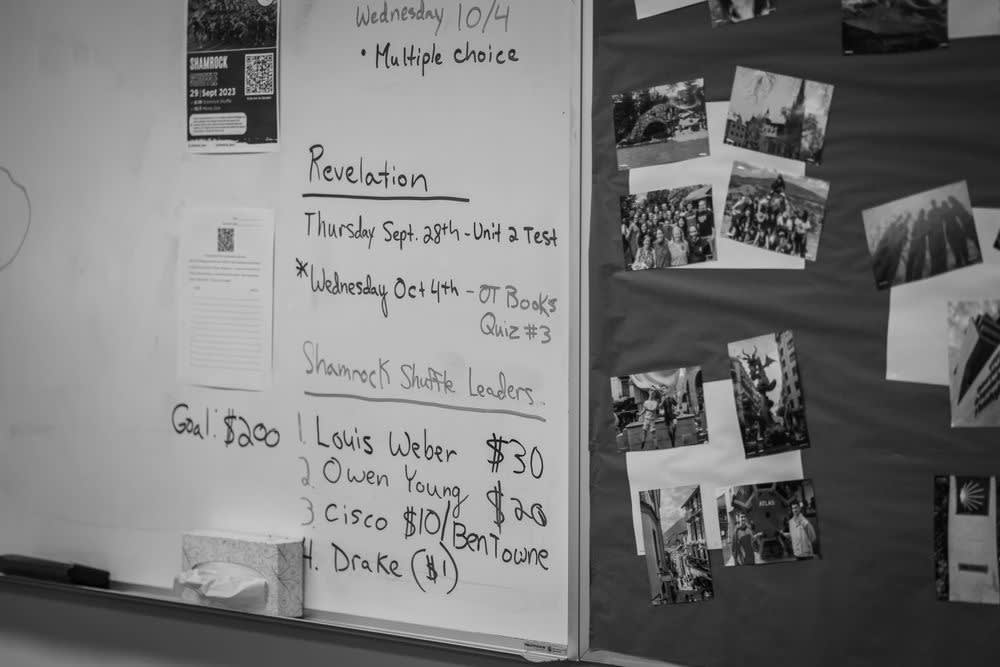 Wednesday 10/4
• Multiple choice
SHAMROCK
29 | Sept 2023
Revelation
Thursday Sept. 28th - Unit 2 Test
*Wednesday Oct 4th - OT Books
Quiz #3
Shamrock Shuffle Leaders
Goal: $200
1. Louis Weber $30
2. Owen Young $20
3. Cisco $10/Ben Towne
4. Drake ($1)
ATLAS